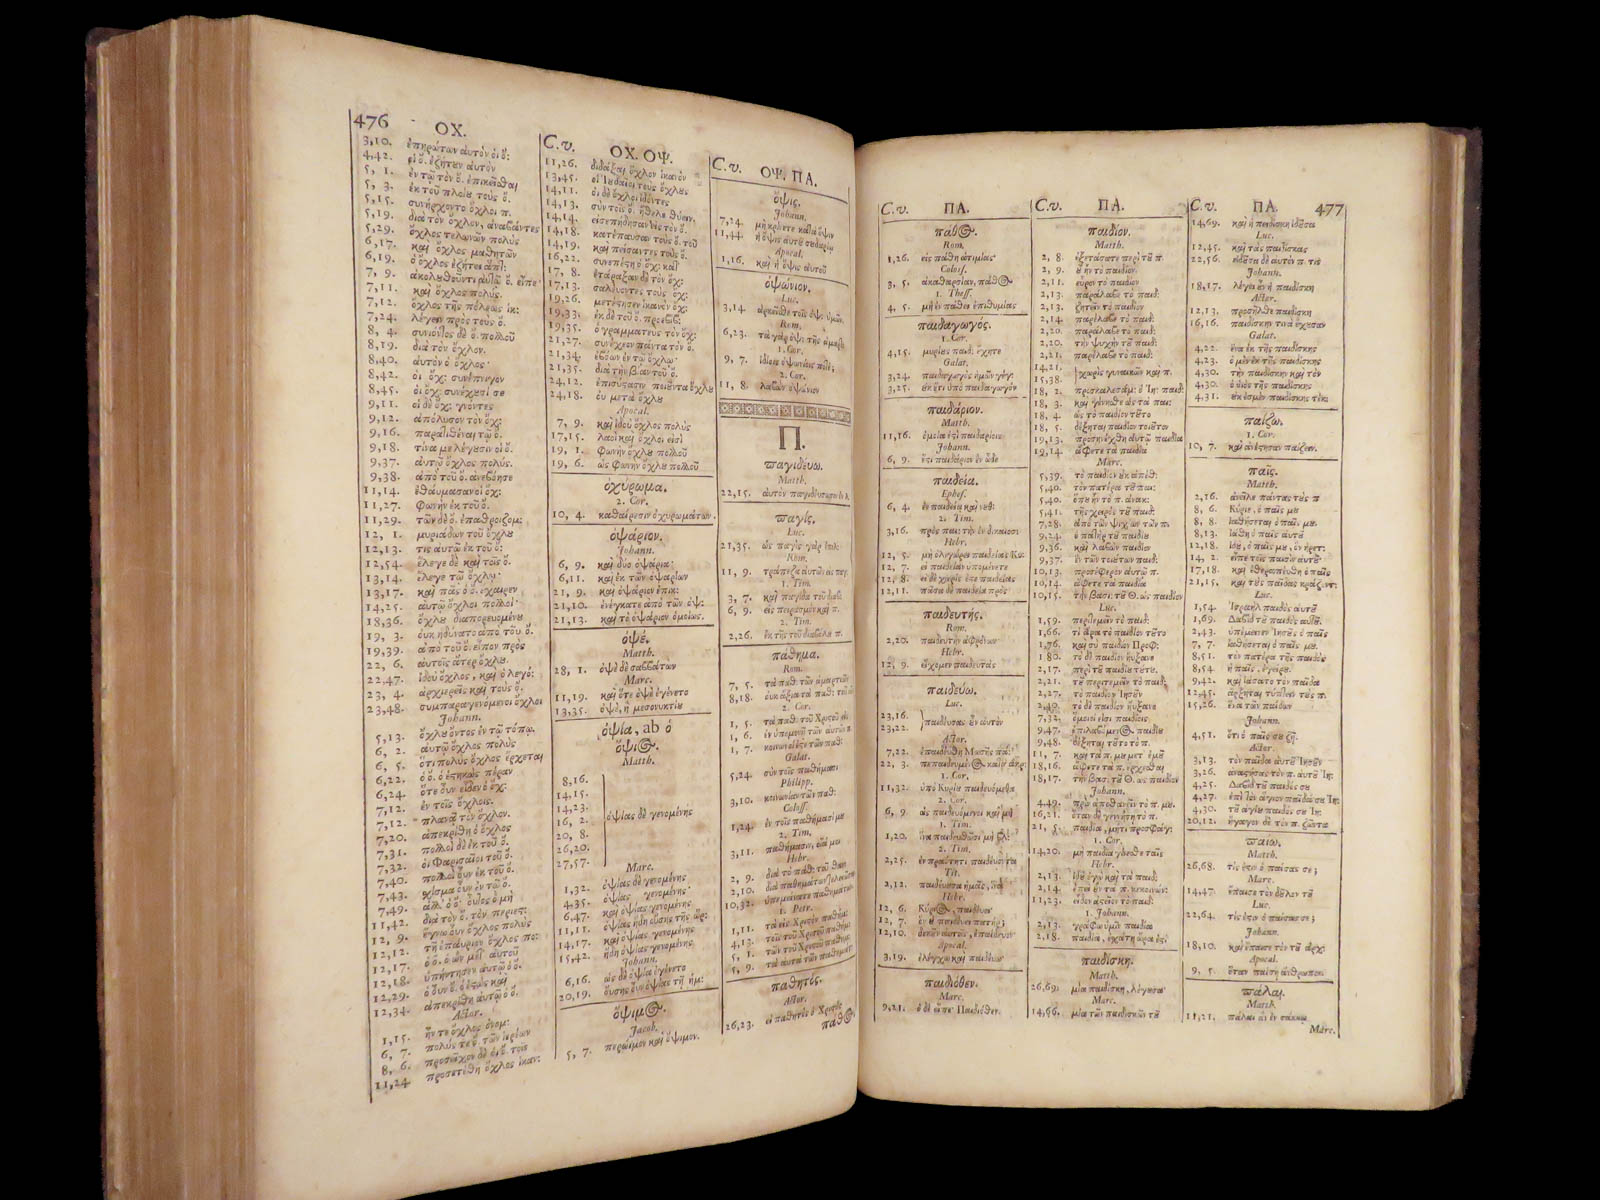 476
ΟΧ.
3,10. ἐπηρώτων αὐτὸν οἱ ὄ:
4,42. οἱ ὄ. ἐζήτουν αὐτὸν
5, 1. ἐν τῷ τὸν ὄ. ἐπικεῖσθαι
5, 3. ἐκ τοῦ πλοίου τοὺς ὄ.
5,15. συνήρχοντο ὄχλοι π.
5,19. διὰ τὸν ὄχλον, ἀναβάντες
5,29. ὄχλος τελωνῶν πολύς
6,17. καὶ ὄχλος μαθητῶν
6,19. ὁ ὄχλος ἐζήτει
7, 9.
7,11. καὶ ὄχλος πολύς.
7,12. ὄχλος τῆς πόλεως ἱκ:
7,24. λέγειν πρὸς τοὺς ὄ.
8, 4. συνιόντος δὲ ὄ. πολλοῦ
8,19. διὰ τὸν ὄχλον.
8,40. αὐτὸν ὁ ὄχλος
8,42. οἱ ὄχ: συνέπνιγον
8,45. οἱ ὄχ: συνέχουσί σε
9,11. οἱ δὲ ὄχ: γνόντες
9,12. ἀπόλυσον τὸν ὄχ:
9,16. παρατιθέναι τῷ ὄ.
9,18. τίνα με λέγουσιν οἱ ὄ:
9,37. αὐτῷ ὄχλος πολύς.
9,38. ἀπὸ τοῦ ὄ. ἀνεβόησε
11,14. ἐθαύμασαν οἱ ὄχ:
11,27. φωνὴν ἐκ τοῦ ὄ.
11,29. τῶν δὲ ὄ. ἐπαθροιζομ:
12, 1. μυριάδων τοῦ ὄχλου
12,13. τις αὐτῷ ἐκ τοῦ ὄ:
12,54. ἔλεγε δὲ καὶ τοῖς ὄ.
13,14. ἔλεγε τῷ ὄχλῳ·
13,17. καὶ πᾶς ὁ ὄ. ἔχαιρεν
14,25. αὐτῷ ὄχλοι πολλοί·
18,36. ὄχλου διαπορευομένου
19, 3. οὐκ ἠδύνατο ἀπὸ τοῦ ὄ.
19,39. ἀπὸ τοῦ ὄ. εἶπον πρὸς
22, 6. αὐτοῖς ἄτερ ὄχλου.
22,47. ἰδοὺ ὄχλος, καὶ ὁ λεγό:
23, 4. ἀρχιερεῖς καὶ τοὺς ὄ.
23,48. συμπαραγενόμενοι ὄχλοι
Johann.
5,13. ὄχλου ὄντος ἐν τῷ τόπῳ.
6, 2. αὐτῷ ὄχλος πολύς
6, 5. ὅτι πολὺς ὄχλος ἔρχεται
6,22. ὁ ὄ. ὁ ἑστηκὼς πέραν
6,24. ὅτε οὖν εἶδεν ὁ ὄχ:
7,12. ἐν τοῖς ὄχλοις.
7,12. πλανᾷ τὸν ὄχλον.
7,20. ἀπεκρίθη ὁ ὄχλος
7,31. πολλοὶ δὲ ἐκ τοῦ ὄ.
7,32. οἱ Φαρισαῖοι τοῦ ὄ.
7,40. πολλοὶ οὖν ἐκ τοῦ ὄ.
7,43. σχίσμα οὖν ἐν τῷ ὄ.
7,49. ἀλλ' ὁ ὄ. οὗτος ὁ μὴ
11,42. διὰ τὸν ὄ. τὸν περιεστ:
12, 9. ἔγνω οὖν ὄχλος πολὺς
12,12. τῇ ἐπαύριον ὄχλος πο:
12,17. ὁ ὄ. ὁ ὢν μετ' αὐτοῦ
12,18. ὑπήντησεν αὐτῷ ὁ ὄ.
12,29. ὁ οὖν ὄ. ὁ ἑστὼς καὶ
12,34. ἀπεκρίθη αὐτῷ ὁ ὄ.
Actor.
1,15. ἦν τε ὄχλος ὀνομ:
6, 7. πολύς τε ὄ. τῶν ἱερέων
8, 6. προσεῖχον δὲ οἱ ὄ. τοῖς
11,24. προσετέθη ὄχλος ἱκαν:
C. v. ΟΧ. ΟΨ.
11,26. διδάξαι ὄχλον ἱκανόν
13,45. οἱ Ἰουδαῖοι τοὺς ὄχλους
14,11. οἱ δὲ ὄχλοι ἰδόντες
14,13. σὺν τοῖς ὄ. ἤθελε θύειν.
14,14. εἰσεπήδησαν εἰς τὸν ὄ.
14,18. κατέπαυσαν τοὺς ὄ. τοῦ
14,19. καὶ πείσαντες τοὺς ὄ.
16,22. συνεπέστη ὁ ὄχ: κατ'
17, 8. ἐτάραξαν δὲ τὸν ὄχ:
17,13. σαλεύοντες τοὺς ὄχ:
19,26. μετέστησεν ἱκανὸν ὄχ:
19,33. ἐκ δὲ τοῦ ὄ. προεβίβ:
19,35. ὁ γραμματεὺς τὸν ὄχ:
21,27. συνέχεον πάντα τὸν ὄ.
21,34. ἐβόων ἐν τῷ ὄχλῳ·
21,35. διὰ τὴν βίαν τοῦ ὄ.
24,12. ἐπισύστασιν ποιοῦντα ὄχλου
24,18. οὐ μετὰ ὄχλου
Apocal.
7, 9. καὶ ἰδοὺ ὄχλος πολύς
17,15. λαοὶ καὶ ὄχλοι εἰσὶ
19, 1. φωνὴν ὄχλου πολλοῦ
19, 6. ὡς φωνὴν ὄχλου πολλοῦ
ὀχύρωμα.
2. Cor.
10, 4. καθαίρεσιν ὀχυρωμάτων.
ὀψάριον.
Johann.
6, 9. καὶ δύο ὀψάρια·
6,11. καὶ ἐκ τῶν ὀψαρίων
21, 9. καὶ ὀψάριον ἐπικ:
21,10. ἐνέγκατε ἀπὸ τῶν ὀψ:
21,13. καὶ τὸ ὀψάριον ὁμοίως.
ὀψέ.
Matth.
28, 1. ὀψὲ δὲ σαββάτων
Marc.
11,19. καὶ ὅτε ὀψὲ ἐγένετο
13,35. ὀψὲ, ἢ μεσονυκτίου
ὀψία, ab ὁ
ὄψιος.
Matth.
8,16.
14,15.
14,23.
16, 2. ὀψίας δὲ γενομένης
20, 8.
26,20.
27,57.
Marc.
1,32. ὀψίας δὲ γενομένης
4,35. ὀψίας γενομένης
6,47. καὶ ὀψίας γενομένης
11,11. ὀψίας ἤδη οὔσης τῆς ὥρ:
14,17. καὶ ὀψίας γενομένης
15,42. ἤδη ὀψίας γενομένης
Johann.
6,16. ὡς δὲ ὀψία ἐγένετο
20,19. οὔσης οὖν ὀψίας τῇ ἡμ:
ὄψιμος.
Jacob.
5, 7. πρώϊμον καὶ ὄψιμον.
C. v. ΟΨ. ΠΑ.
ὄψις.
Johann.
7,24. μὴ κρίνετε κατ' ὄψιν
11,44. ἡ ὄψις αὐτοῦ σουδαρίῳ
Apocal.
1,16. καὶ ἡ ὄψις αὐτοῦ
ὀψώνιον.
Luc.
3,14. ἀρκεῖσθε τοῖς ὀψ. ὑμῶν.
Rom.
6,23. τὰ γὰρ ὀψώ. τῆς ἁμαρτ.
1. Cor.
9, 7. ἰδίοις ὀψωνίοις ποτέ;
2. Cor.
11, 8. λαβὼν ὀψώνιον
Π.
παγιδεύω.
Matth.
22,15. αὐτὸν παγιδεύσωσιν ἐν λ.
παγίς.
Luc.
21,35. ὡς παγὶς γὰρ ἐπελ:
Rom.
11, 9. τράπεζα αὐτῶν εἰς παγ.
1. Tim.
3, 7. καὶ παγίδα τοῦ διαβ.
6, 9. εἰς πειρασμὸν καὶ π.
2. Tim.
2,26. ἐκ τῆς τοῦ διαβόλου π.
πάθημα.
Rom.
7, 5. τὰ παθ. τῶν ἁμαρτιῶν
8,18. οὐκ ἄξια τὰ παθ: τοῦ
2. Cor.
1, 5. τὰ παθ. τοῦ Χριστοῦ εἰς
1, 6. ἐν ὑπομονῇ τῶν αὐτῶν π.
1, 7. κοινωνοί ἐστε τῶν παθ:
Galat.
5,24. σὺν τοῖς παθήμασι
Philipp.
3,10. κοινωνίαν τῶν παθ:
Coloss.
1,24. ἐν τοῖς παθήμασί μου
2. Tim.
3,11. παθήμασιν, οἷά μοι
Hebr.
2, 9. διὰ τὸ πάθ: τοῦ θαν.
2,10. διὰ παθημάτων τελειῶσαι
10,32. ὑπεμείνατε παθημάτων.
1. Petr.
1,11. τὰ εἰς Χριστὸν παθήμ:
4,13. τοῖς τοῦ Χριστοῦ παθήμ:
5, 1. τῶν τοῦ Χριστοῦ παθήμ:
5, 9. τὰ αὐτὰ τῶν παθημάτων
παθητός.
Actor.
26,23. εἰ παθητὸς ὁ Χριστὸς
πάθος
C. v. ΠΑ.
πάθος.
Rom.
1,26. εἰς πάθη ἀτιμίας·
Coloss.
3, 5. ἀκαθαρσίαν, πάθος
1. Thess.
4, 5. μὴ ἐν πάθει ἐπιθυμίας
παιδαγωγός.
1. Cor.
4,15. μυρίους παιδ: ἔχητε
Galat.
3,24. παιδαγωγὸς ἡμῶν γέγ:
3,25. οὐκ ἔτι ὑπὸ παιδαγωγόν
παιδάριον.
Matth.
11,16. ὁμοία ἐστὶ παιδαρίοις
Johann.
6, 9. ἔστι παιδάριον ἓν ὧδε
παιδεία.
Ephes.
6, 4. ἐν παιδείᾳ καὶ νουθ:
2. Tim.
3,16. πρὸς παι: τὴν ἐν δικαιοσ:
Hebr.
12, 5. μὴ ὀλιγώρει παιδείας Κυ:
12, 7. εἰ παιδείαν ὑπομένετε
12, 8. εἰ δὲ χωρίς ἐστε παιδείας
12,11. πᾶσα δὲ παιδεία πρὸς
παιδευτής.
Rom.
2,20. παιδευτὴν ἀφρόνων·
Hebr.
12, 9. εἴχομεν παιδευτάς
παιδεύω.
Luc.
23,16.
23,22. παιδεύσας οὖν αὐτὸν
Actor.
7,22. ἐπαιδεύθη Μωσῆς πά:
22, 3. πεπαιδευμένος κατὰ ἀκρ:
1. Cor.
11,32. ὑπὸ Κυρίου παιδευόμεθα
2. Cor.
6, 9. ὡς παιδευόμενοι καὶ μὴ
1. Tim.
1,20. ἵνα παιδευθῶσι μὴ βλ:
2. Tim.
2,25. ἐν πραότητι παιδεύοντα
Tit.
2,12. παιδεύουσα ἡμᾶς, ἵνα
Hebr.
12, 6. Κύριος, παιδεύει·
12, 7. ὃν οὐ παιδεύει πατήρ;
12,10. δοκοῦν αὐτοῖς, ἐπαίδευον·
Apocal.
3,19. ἐλέγχω καὶ παιδεύω·
παιδιόθεν.
Marc.
9,21. ὁ δὲ εἶπε· Παιδιόθεν.
C. v. ΠΑ.
παιδίον.
Matth.
2, 8. ἐξετάσατε περὶ τοῦ π.
2, 9. οὗ ἦν τὸ παιδίον.
2,11. εὗρον τὸ παιδίον
2,13. παράλαβε τὸ παιδ:
2,13. ζητεῖν τὸ παιδίον
2,14. παρέλαβε τὸ παιδ:
2,20. παράλαβε τὸ παιδ:
2,20. τὴν ψυχὴν τοῦ παιδ:
2,21. παρέλαβε τὸ παιδ:
14,21.
15,38. χωρὶς γυναικῶν καὶ π.
18, 2. προσκαλεσάμ: ὁ Ἰη: παιδ:
18, 3. καὶ γένησθε ὡς τὰ παι:
18, 4. ὡς τὸ παιδίον τοῦτο
18, 5. δέξηται παιδίον τοιοῦτον
19,13. προσηνέχθη αὐτῷ παιδία
19,14. ἄφετε τὰ παιδία
Marc.
5,39. τὸ παιδίον οὐκ ἀπέθ:
5,40. τὸν πατέρα τοῦ παι:
5,40. ὅπου ἦν τὸ π. ἀνακ:
5,41. τῆς χειρὸς τοῦ παιδ:
7,28. ἀπὸ τῶν ψιχίων τῶν π.
9,24. ὁ πατὴρ τοῦ παιδίου
9,36. καὶ λαβὼν παιδίον
9,37. ἓν τῶν τοιούτων παιδ:
10,13. προσέφερον αὐτῷ π.
10,14. ἄφετε τὰ παιδία
10,15. τὴν βασι: τοῦ Θ. ὡς παιδίον
Luc.
1,59. περιτεμεῖν τὸ παιδ:
1,66. τί ἄρα τὸ παιδίον τοῦτο
1,76. καὶ σὺ παιδίον Προφ:
1 80. τὸ δὲ παιδίον ηὔξανε
2,17. περὶ τοῦ παιδίου τούτου.
2,21. τοῦ περιτεμεῖν τὸ παιδ:
2,27. τὸ παιδίον Ἰησοῦν
2,40. τὸ δὲ παιδίον ηὔξανε
7,32. ὅμοιοί εἰσι παιδίοις
9,47. ἐπιλαβόμενος παιδίου
9,48. δέξηται τοῦτο τὸ π.
11, 7. καὶ τὰ π. μου μετ' ἐμοῦ
18,16. ἄφετε τὰ π. ἔρχεσθαι
18,17. τὴν βασ: τοῦ Θ. ὡς παιδίον
Johann.
4,49. πρὶν ἀποθανεῖν τὸ π. μου.
16,21. ὅταν δὲ γεννήσῃ τὸ π.
21, 5. παιδία, μήτι προσφάγ:
1. Cor.
14,20. μὴ παιδία γίνεσθε ταῖς
Hebr.
2,13. ἰδοὺ ἐγὼ καὶ τὰ παιδ:
2,14. ἐπεὶ οὖν τὰ π. κεκοινών:
11,23. εἶδον ἀστεῖον τὸ παιδ:
1. Johann.
2,13. γράφω ὑμῖν παιδία
2,18. παιδία, ἐσχάτη ὥρα ἐστί·
παιδίσκη.
Matth.
26,69. μία παιδίσκη, λέγουσα·
Marc.
14,66. μία τῶν παιδισκῶν τοῦ
C. v. ΠΑ. 477
14,69. καὶ ἡ παιδίσκη ἰδοῦσα
Luc.
12,45. καὶ τὰς παιδίσκας
22,56. ἰδοῦσα δὲ αὐτὸν π. τις
Johann.
18,17. λέγει οὖν ἡ παιδίσκη
Actor.
12,13. προσῆλθε παιδίσκη
16,16. παιδίσκην τινὰ ἔχουσαν
Galat.
4,22. ἕνα ἐκ τῆς παιδίσκης
4,23. ὁ μὲν ἐκ τῆς παιδίσκης
4,30. τὴν παιδίσκην καὶ τὸν
4,30. ὁ υἱὸς τῆς παιδίσκης
4,31. οὐκ ἐσμὲν παιδίσκης τέκ:
παίζω.
1. Cor.
10, 7. καὶ ἀνέστησαν παίζειν.
παῖς.
Matth.
2,16. ἀνεῖλε πάντας τοὺς π
8, 6. Κύριε, ὁ παῖς μου
8, 8. ἰαθήσεται ὁ παῖς μου.
8,13. ἰάθη ὁ παῖς αὐτοῦ
12,18. ἰδοὺ, ὁ παῖς μου, ὃν ᾑρετ:
14, 2. εἶπε τοῖς παισὶν αὐτοῦ·
17,18. καὶ ἐθεραπεύθη ὁ παῖς
21,15. καὶ τοὺς παῖδας κράζοντ:
Luc.
1,54. Ἰσραὴλ παιδὸς αὐτοῦ
1,69. Δαβὶδ τοῦ παιδὸς αὐτοῦ.
2,43. ὑπέμεινεν Ἰησοῦς ὁ παῖς
7, 7. ἰαθήσεται ὁ παῖς μου.
8,51. τὸν πατέρα τῆς παιδὸς
8,54. ἡ παῖς, ἐγείρου.
9,42. καὶ ἰάσατο τὸν παῖδα
12,45. ἄρξηται τύπτειν τοὺς π.
15,26. ἕνα τῶν παίδων
Johann.
4,51. ὅτι ὁ παῖς σου ζῇ.
Actor.
3,13. τὸν παῖδα αὐτοῦ Ἰησοῦν
3,26. ἀναστήσας τὸν π. αὐτοῦ Ἰη:
4,25. Δαβὶδ τοῦ παιδός σου
4,27. ἐπὶ τὸν ἅγιον παῖδά σου Ἰη:
4,30. τοῦ ἁγίου παιδός σου Ἰη:
20,12. ἤγαγον δὲ τὸν π. ζῶντα
παίω.
Matth.
26,68. τίς ἐστιν ὁ παίσας σε;
Marc.
14,47. ἔπαισε τὸν δοῦλον τοῦ
Luc.
22,64. τίς ἐστιν ὁ παίσας σε;
Johann.
18,10. καὶ ἔπαισε τὸν τοῦ ἀρχ:
Apocal.
9, 5. ὅταν παίσῃ ἄνθρωπον.
πάλαι.
Matth.
11,21. πάλαι ἂν ἐν σάκκῳ
Marc.